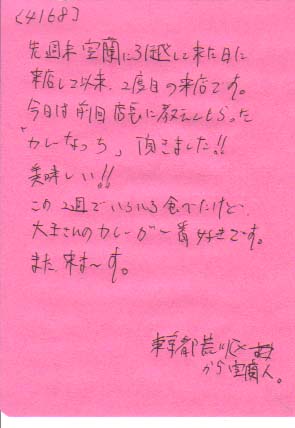 [4168]
先週末室蘭に引越して来た日に
来店して以来、2度目の来店です。
今日は前回店長に教えてもらった
「カレーなっち」頂きました!!
美味しい!!
この2週でいろいろ食べたけど、
大王さんのカレーが一番好きです。
また来ま〜す。
東京都荒川区
から室蘭人。